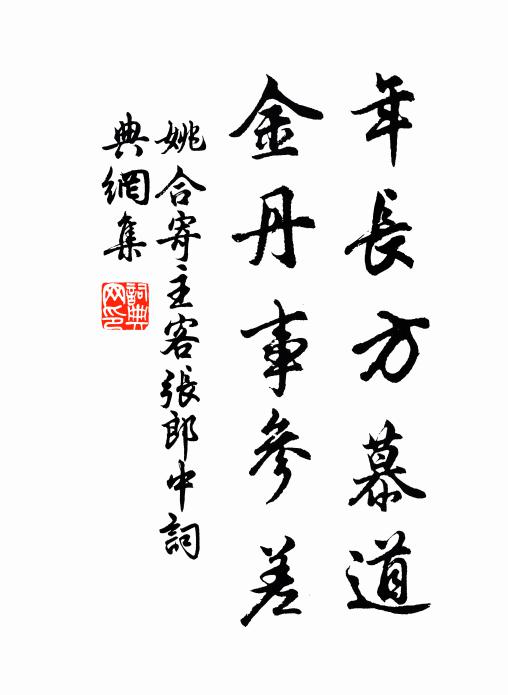 年長方慕道
金丹事參差
姚合寄主客張郎中詞
典網集
詞典網印